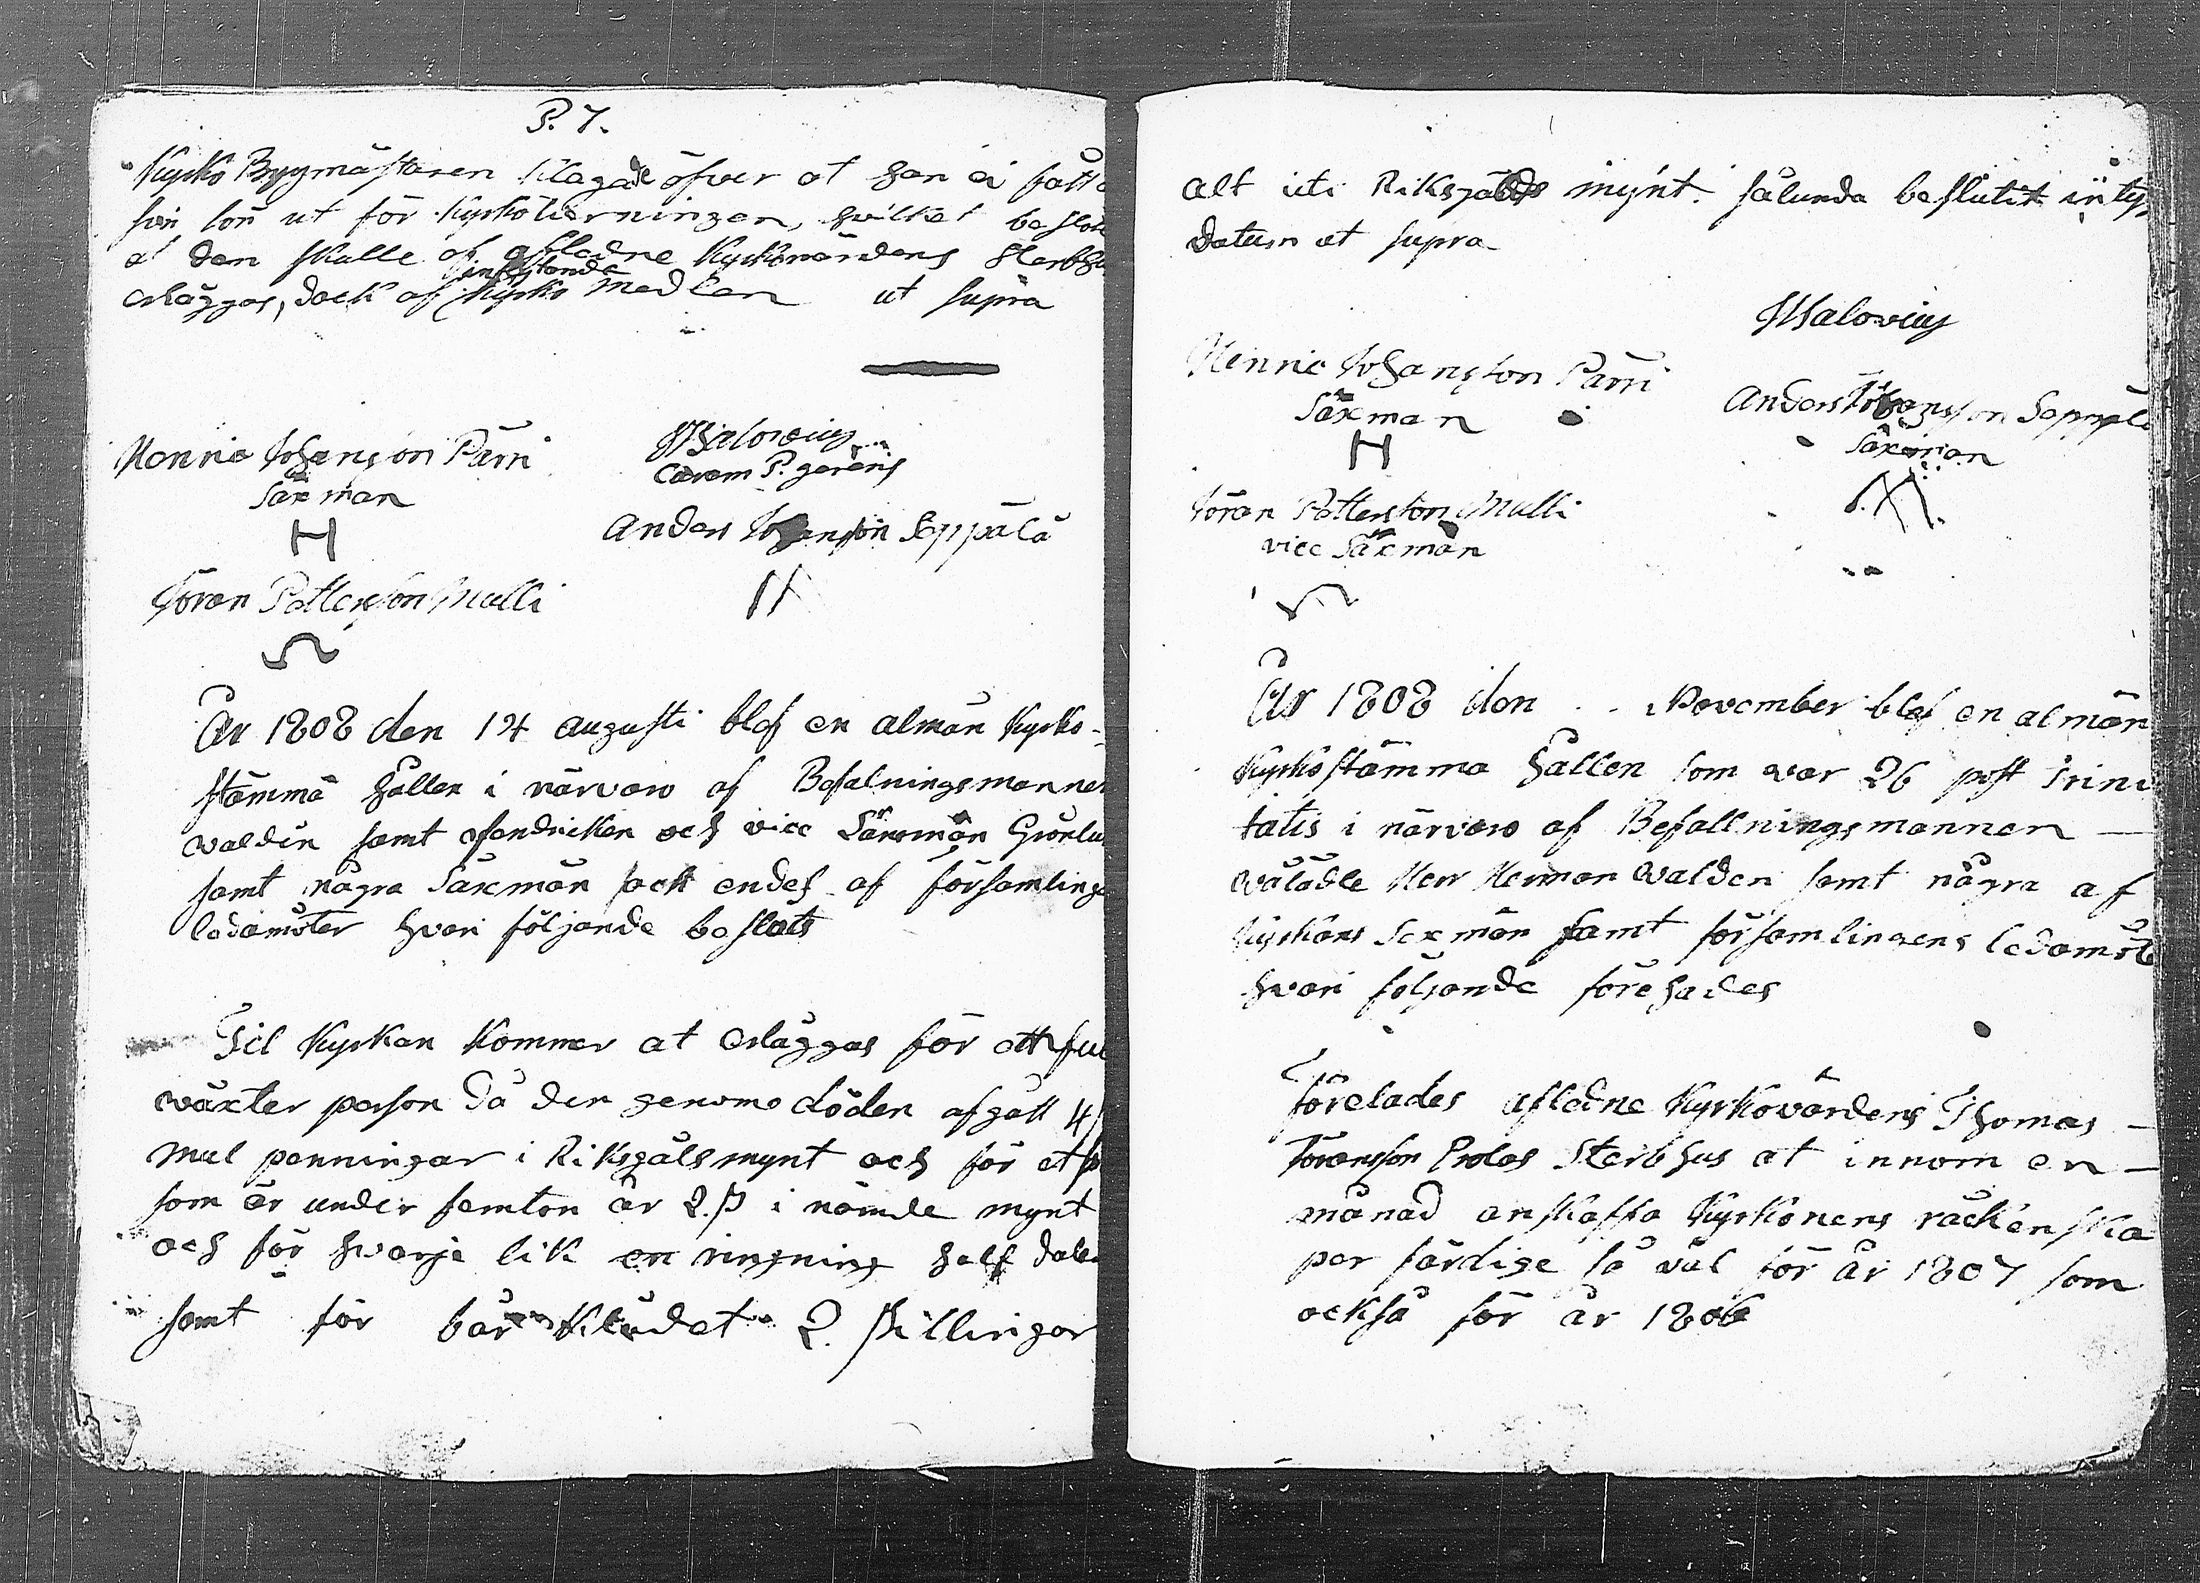 P. 7.
Kyrko Bygmästaren klagade öfver at han ei fått
sin lön ut för Kyrkotierningen, hvilket beslöts
at den skulle af afledne Kyrkovärdens Sterbhu
innestående
erläggas, dock af Kyrko Medlen ut supra
Henric Johansson Parri
Säxman
H
JHalovius
Curam P. gerens
Anders Johansson Seppälä
Jöran Pettersson Mulli
År 1808 den 14 augusti blef en alman Kyrko-
stämma hållen i närvaro af Befalningsmannen
Walden samt fendricken och vice Länsman Grönlu
samt några Säxmän sack endel af försomlinge
ledamöter hvari följande beslöts
Til Kyrkan kommer at erläggas för ett ful
wäxter person då den genom döden afgått 4
mul penningar i Riksgäls mynt och för et
som är under femton år 2.P i nämde mynt
och för hvarje lik en ringning half daler
samt för bår klädet 2. skillingar
alt uti Riksgälds mynt. sålunda beslutit intyg
Datum ut supra
JHalovius
Henric Johansson Parri
Säxman
H
Anders Johansson Seppälä
Säxman
Jöran Pettersson Mulli
vice Säxman
År 1808 den . . November blef en alman
Kyrkostämma hållen som var 26 post Trini
tatis i närvaro af Befallningsmannen —
wälädle Herr Herman Walden samt några af
Kyrkans Sexmän samt försomlingens ledamöte
hvari följande förehades
förelades afledne Kyrkovärdens Thomas —
Jöransson Prolas Sterbhus at innom en —
månad anskaffa Kyrkonens räckenska
per färdige så väl för år 1807 som
också för år 1806